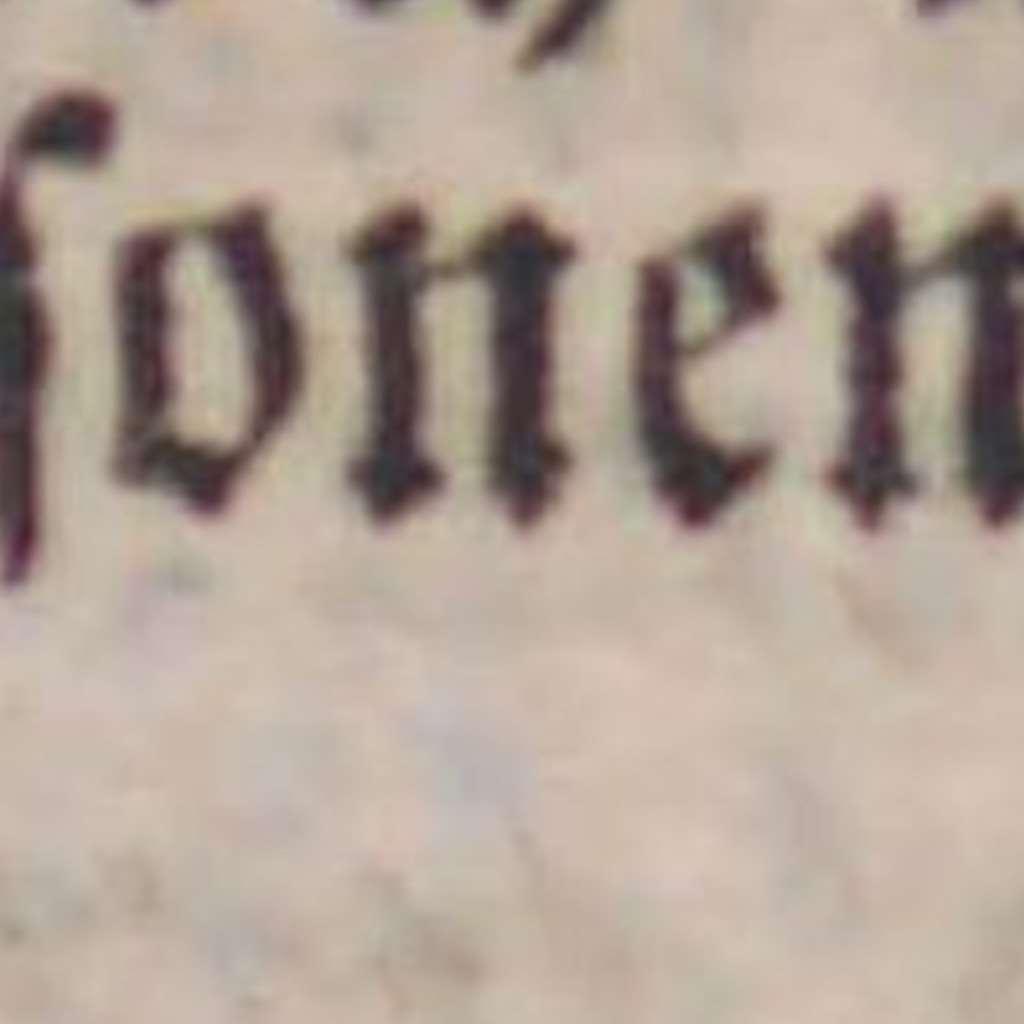 ſonen